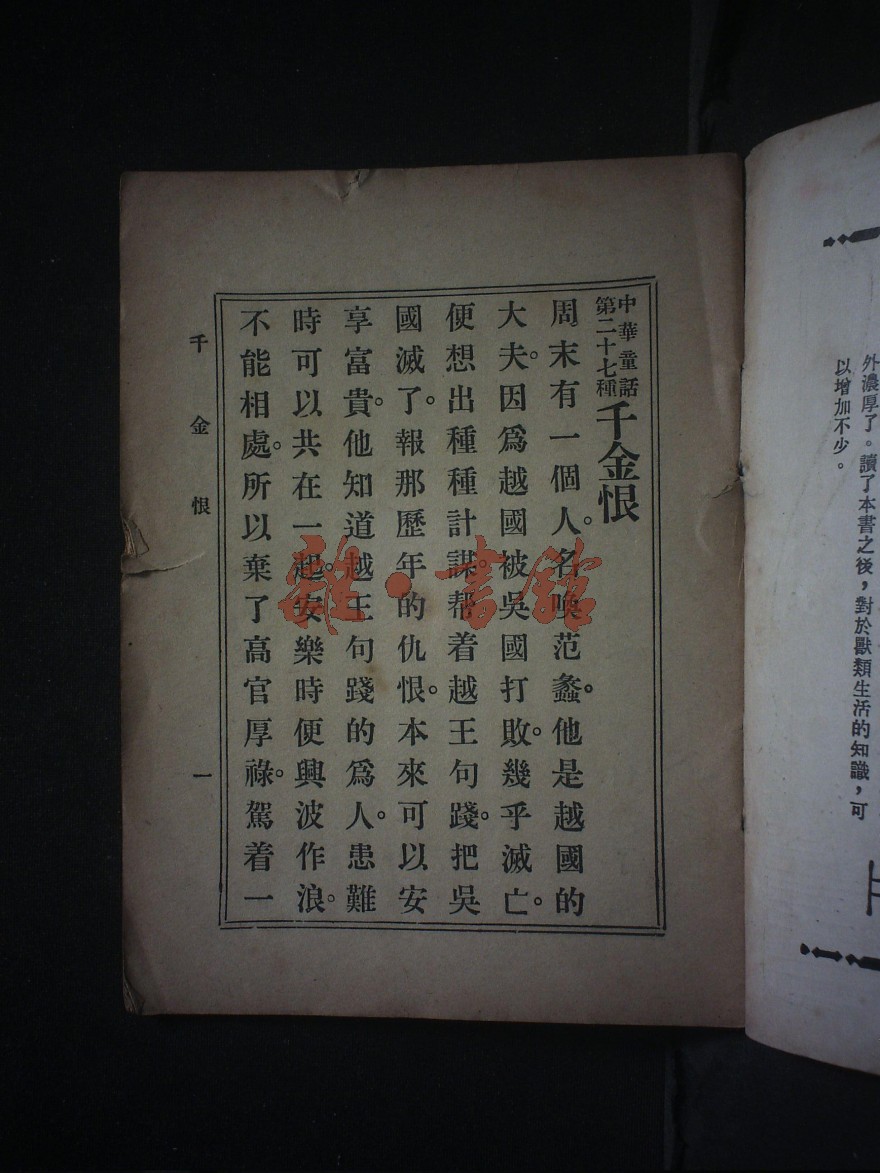 外濃厚了。讀了本書之後，對於獸類生活的知識，可
以增加不少。
中華童話
第二十七種
千金恨
周末有一個人。名喚范蠡。他是越國的
大夫。因爲越國被吳國打敗。幾乎滅亡。
便想出種種計謀。帮着越王句踐。把吳
國滅了。報那歷年的仇恨。本來可以安
享富貴。他知道越王句踐的爲人。患難
時可以共在一起。安樂時便興波作浪。
不能相處。所以棄了高官厚祿。駕着一
千金恨
一
雜·書館